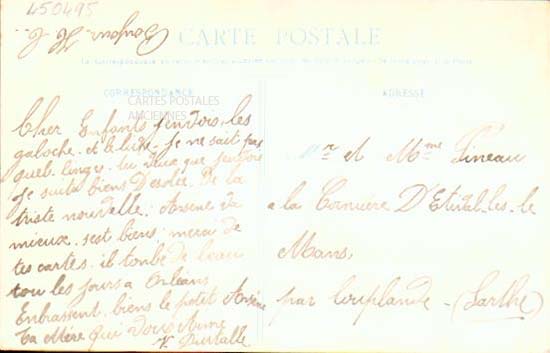 450495
Bonjour
CARTE POSTALE
CORRESPONDANCE
ADRESSE
CARTES POSTALES
ANCIENNES
Cher Enfants j'envois les
galoche et le je ne sait pas
quel linges tu que j'envois
Je suits biens Desolée De la
triste nouvelle Arsène va
mieux sest biens merci de
tes cartes il tombe de leau
tou les jours a Orléans
Enbrassent biens le petit Arsène
ta Mère qui vous aime
V.
Mr et Mme Pineau
a la Cornière D'Etival-les-le
Mans
par Louplande (Sarthe)